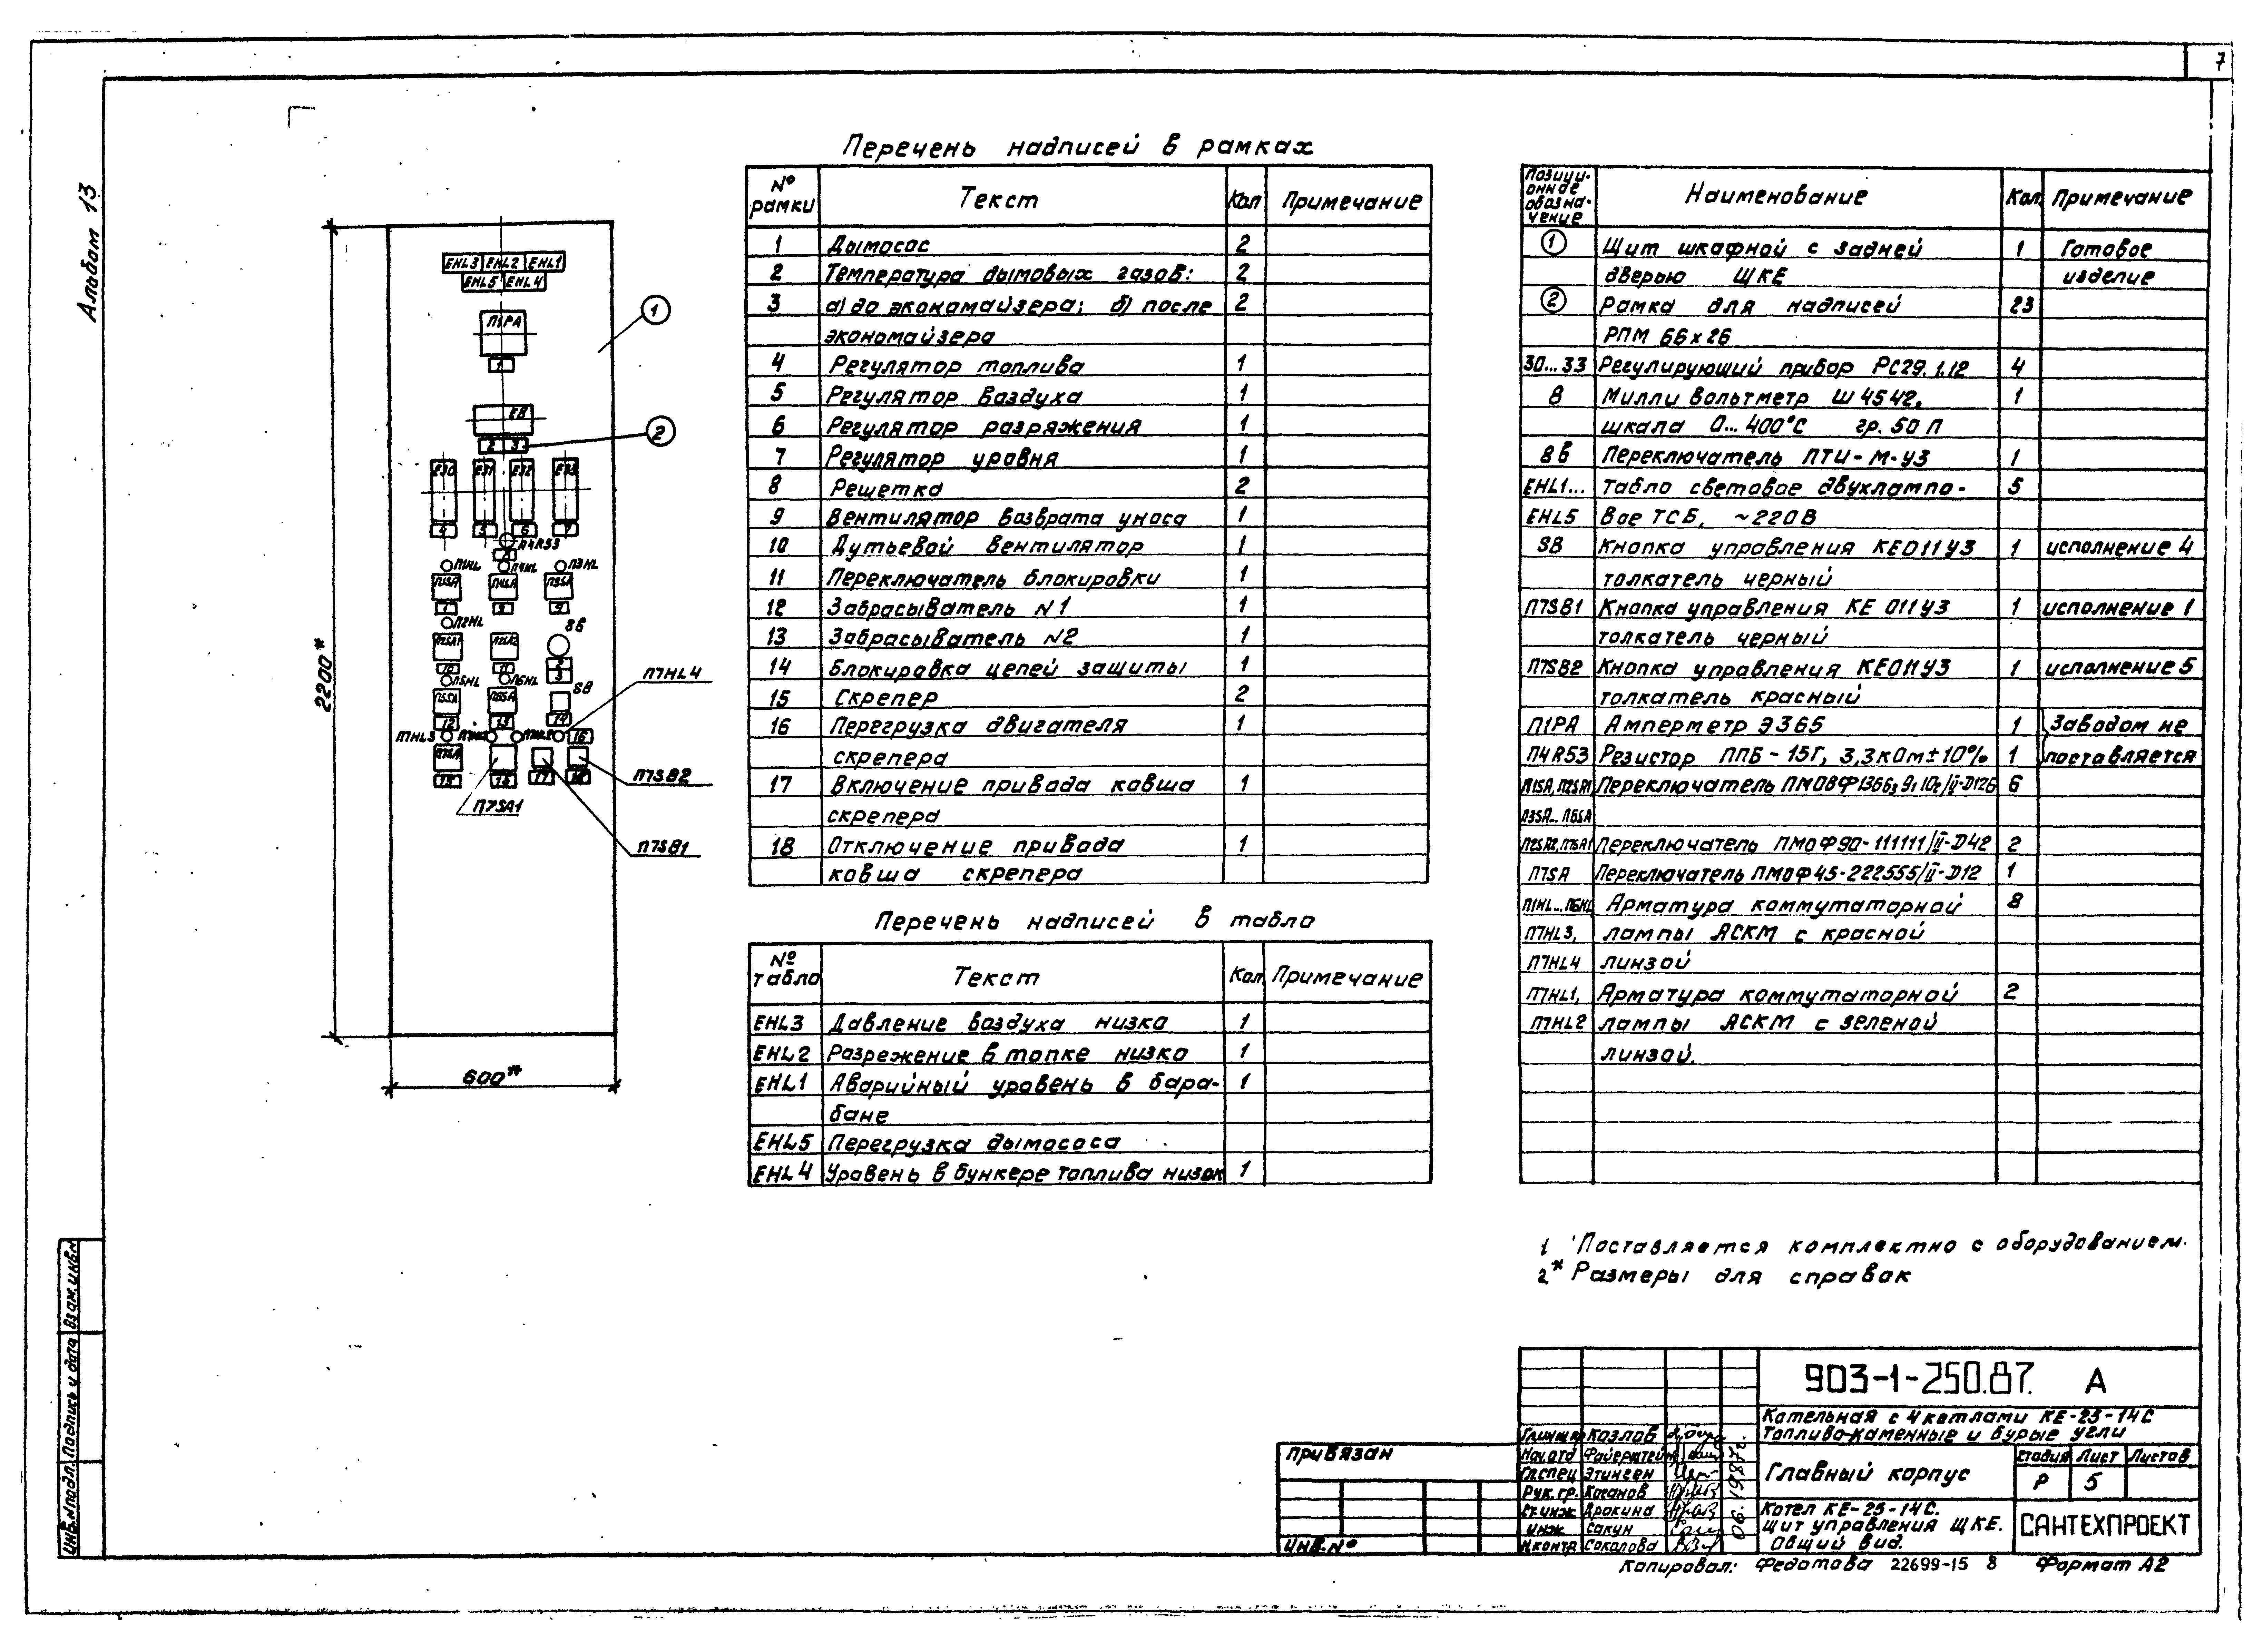 7
Альбом 13
EHL3 EHL2 EHL1
EHL5 EHL4
П1РА
1
1
E8
2 3
2
E30 E31 E32 E33
4 5 6 7
П4RS3
8
П1HL П4HL П3HL
П1SA П4SA П3SA
1 8 9
П2HL
8Б
П2SA1 П2SA2
10 11 2
3
П5HL П6HL
SB
П7HL4
П5SA П6SA
12 13 14
П7HL3
16
П7SA
15 17
П7SB2
П7SA1
П7SB1
2200*
600*
Перечень надписей в рамках
№ рамки Текст Кол Примечание
1 Дымосос 2
2 Температура дымовых газов: 2
3 а) до экономайзера; б) после 2
экономайзера
4 Регулятор топлива 1
5 Регулятор воздуха 1
6 Регулятор разряжения 1
7 Регулятор уровня 1
8 Решетка 2
9 Вентилятор возврата уноса 1
10 Дутьевой вентилятор 1
11 Переключатель блокировки 1
12 Забрасыватель N1 1
13 Забрасыватель N2 1
14 Блокировка цепей защиты 1
15 Скрепер 2
16 Перегрузка двигателя 1
скрепера
17 Включение привода ковша 1
скрепера
18 Отключение привода 1
ковша скрепера
Перечень надписей в табло
№ табло Текст Кол Примечание
EHL3 Давление воздуха низко 1
EHL2 Разрежение в топке низко 1
EHL1 Аварийный уровень в бара- 1
бане
EHL5 Перегрузка дымососа
EHL4 Уровень в бункере топлива низок 1
Позици-
онное
обозна-
чение
Наименование Кол. Примечание
1 Щит шкафной с задней 1 Готовое
дверью ЩКЕ изделие
2 Рамка для надписей 23
РПМ 66х26
30...33 Регулирующий прибор РС29.1.12 4
8 Милливольтметр Ш4542, 1
шкала 0...400°С гр. 50П
8Б Переключатель ПТИ-М-У3 1
EHL1... Табло световое двухлампо- 5
EHL5 вое ТСБ, ~220В
SB Кнопка управления КЕ011У3 1 исполнение 4
толкатель черный
П7SB1 Кнопка управления КЕ 011У3 1 исполнение 1
толкатель черный
П7SB2 Кнопка управления КЕ011У3 1 исполнение 5
толкатель красный
П1РА Амперметр Э365 1 Заводом не
П4RS3 Резистор ППБ-15Г, 3,3кОм±10% 1 поставляется
П1SA, П2SA1 Переключатель 6
П3SA...П6SA
П2SA2, П7SA1 Переключатель ПМОФ90-111111/II-D42 2
П7SA Переключатель ПМОФ45-222555/II-D12 1
П1HL...П6HL Арматура коммутаторной 8
П7HL3, лампы АСКМ с красной
П7HL4 линзой
П7HL1, Арматура коммутаторной 2
П7HL2 лампы АСКМ с зеленой
линзой.
1 Поставляется комплектно с оборудованием.
2* Размеры для справок
903-1-250.87. А
Котельная с 4 котлами КЕ-25-14С
Топливо-каменные и бурые угли
Козлов
Нач.отд Файерштейн
Гл.спец Этинген
Рук.гр. Коганов
Ст.инж Дрокина
инж Сакун
Н.контр Соколова
06. 1987г.
Главный корпус
Стадия Лист Листов
Р 5
Котел КЕ-25-14С.
Щит управления ЩКЕ.
Общий вид.
САНТЕХПРОЕКТ
Привязан
Инв.№
Инв.№подл. Подпись и дата Взам.инв.№
Копировал: Федотова 22699-15 8 Формат А2